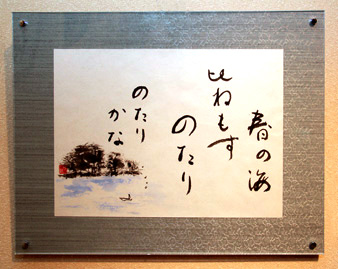 春の海
ひねもす
のたり
のたり
かな